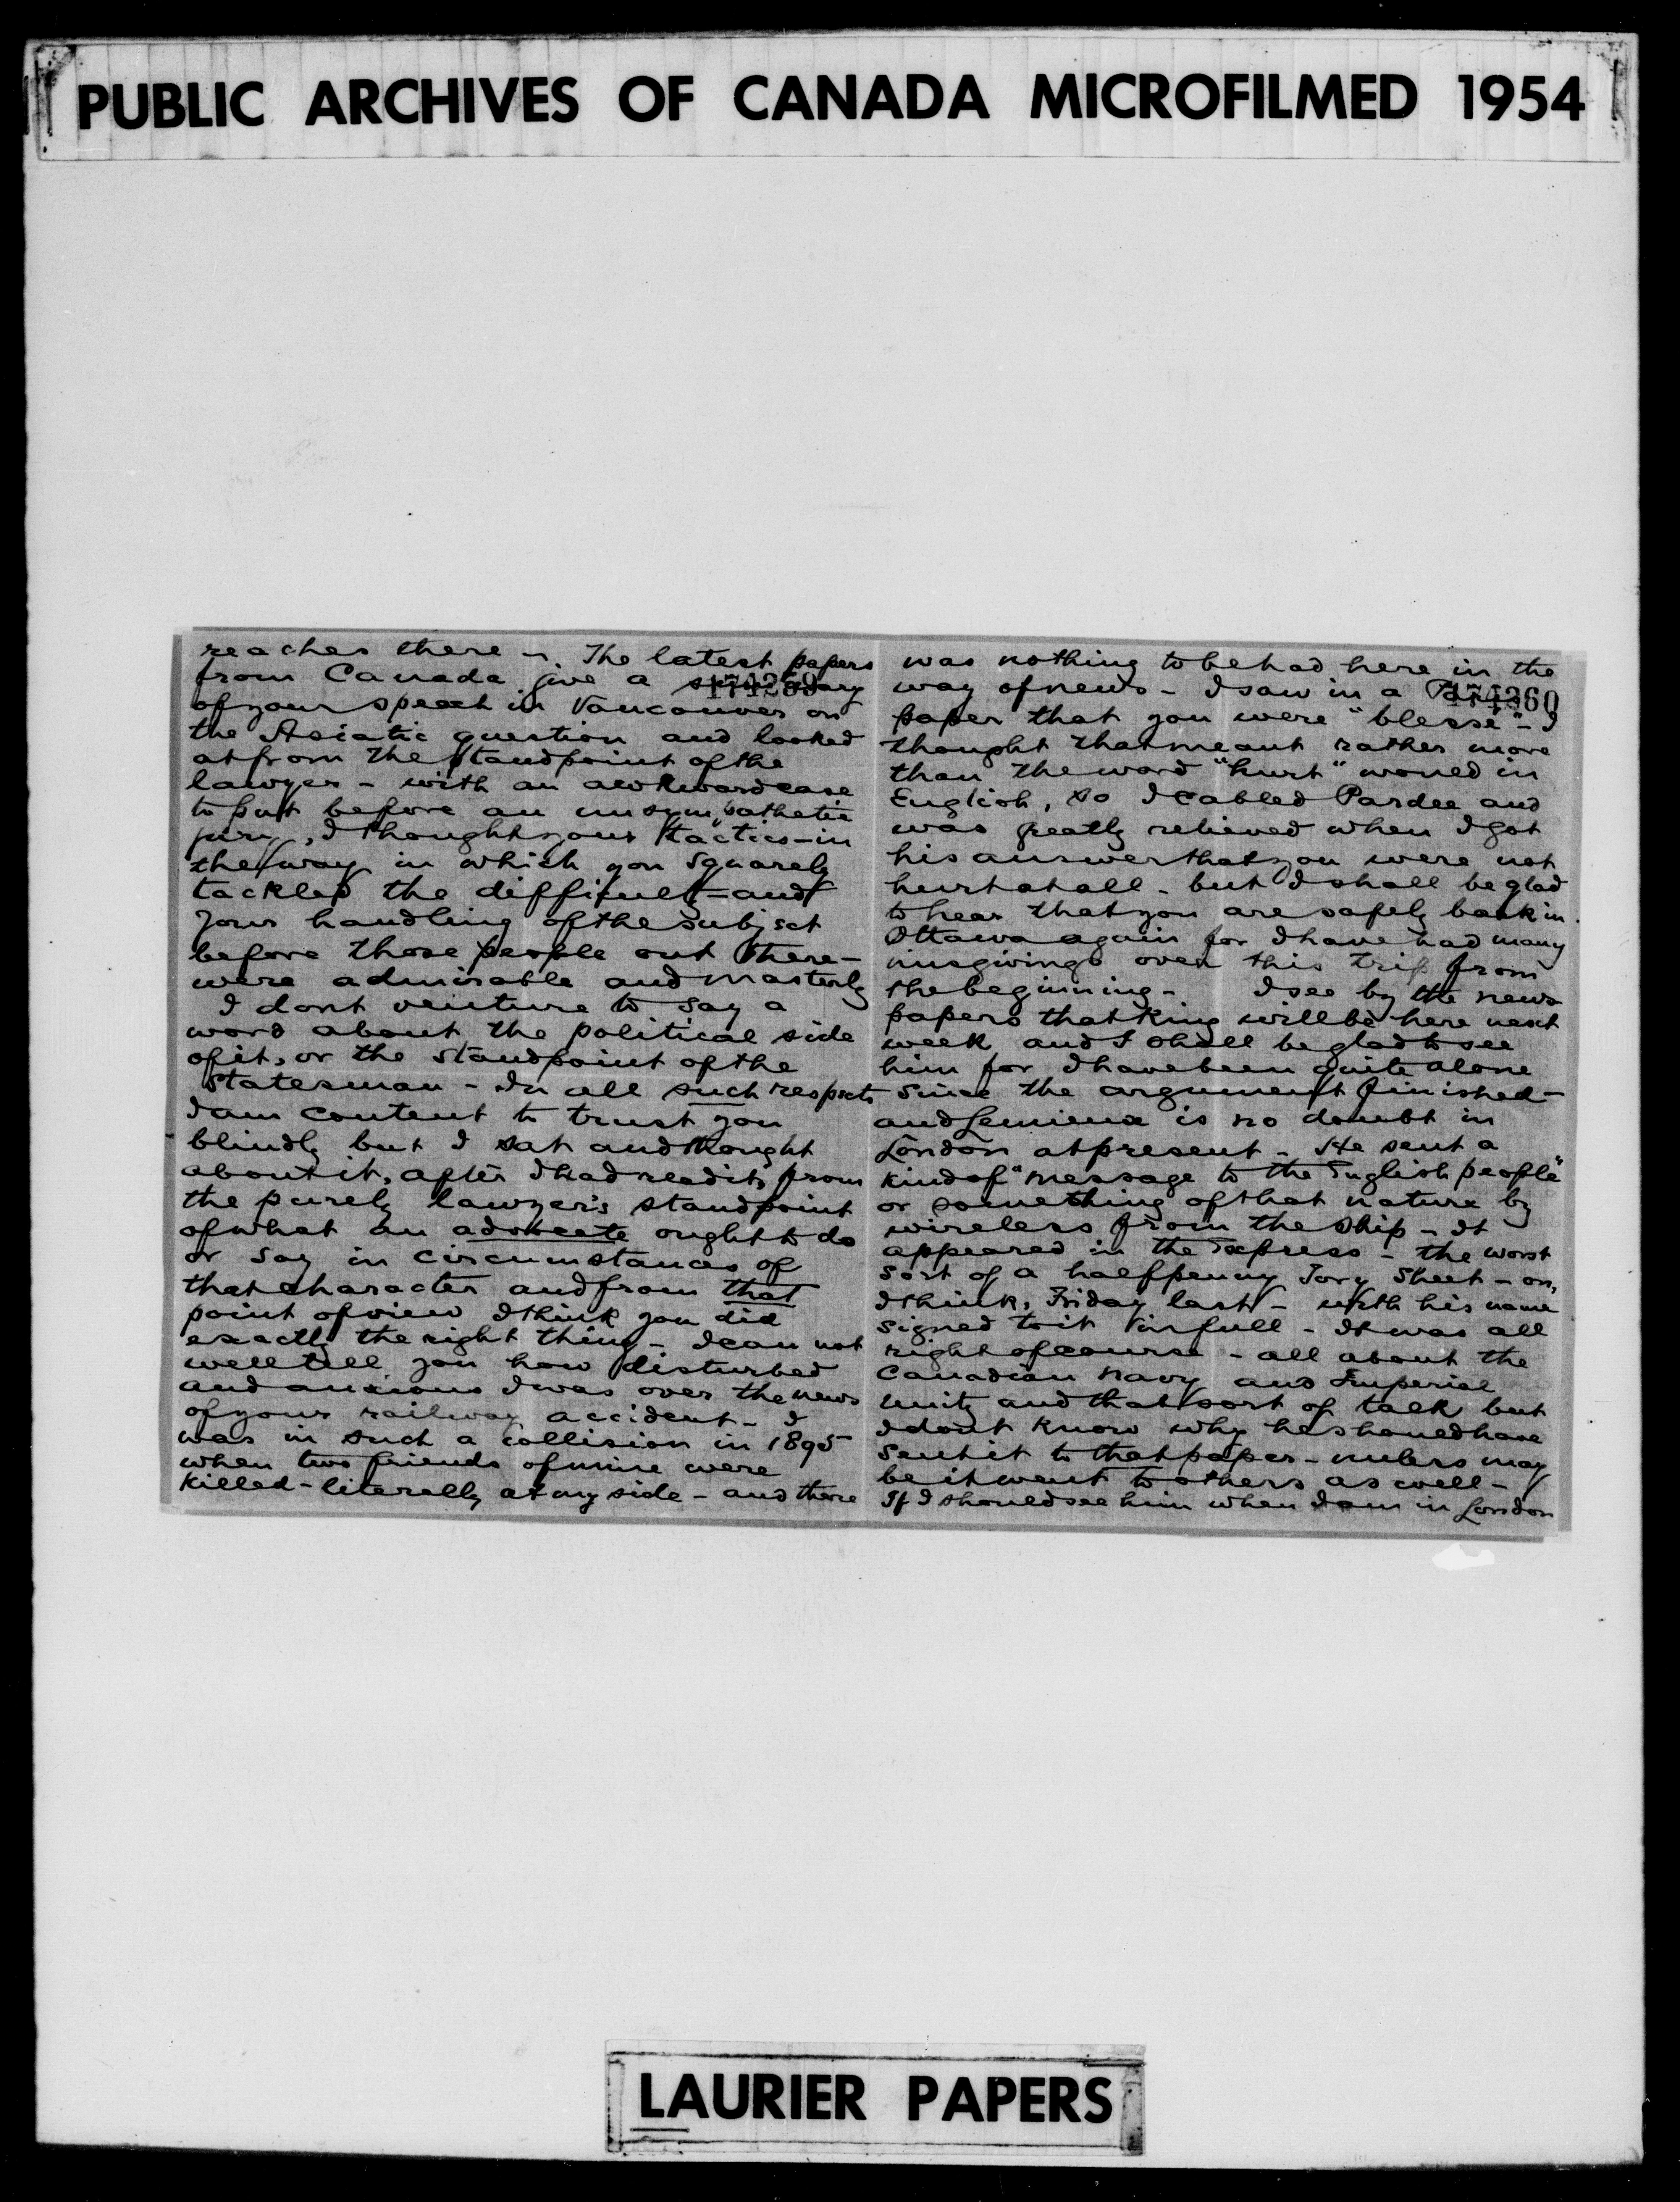 PUBLIC ARCHIVES OF CANADA MICROFILMED 1954
reaches there -. The latest papers
from Canada give a summary
174259
of your speech in Vancouver on
the Asiatic question and looked
at from the standpoint of the
lawyer - with an awkward case
to put before an unsympathetic
jury, I thought your tactics - in
the way in which you squarely
tackled the difficult - and
your handling of the subject
before those people out there -
were admirable and masterly
I dont venture to say a
word about the political side
of it, or the standpoint of the
statesman - In all such respects
I am content to trust you
blindly but I sat and thought
about it, after I had read it, from
the purely lawyer's standpoint
of what an advocate ought to do
or say in circumstances of
that character and from that
point of view I think you did
exactly the right thing - I can not
well tell you how disturbed
and anxious I was over the news
of your railway accident - I
was in such a collision in 1895
when two friends of mine were
killed - literally at my side - and there
was nothing to be had here in the
way of news - I saw in a
174260
paper that you were "blesse" - I
thought that meant rather more
than the word "hurt" would in
English, so I cabled Pardee and
was greatly relieved when I got
his answer that you were not
hurt at all - but I shall be glad
to hear that you are safely back in
Ottawa again for I have had many
misgivings over this trip from
the beginning - I see by the news
papers that King will be here next
week and I shall be glad to see
him for I have been quite alone
since the argument finished -
and Lemieux is no doubt in
London at present - He sent a
kind of "message to the English people"
or something of that nature by
wireless from the ship - It
appeared in the Express - the worst
sort of a halfpenny Tory sheet - on,
I think, Friday last - with his name
signed to it in full - It was all
right of course - all about the
Canadian navy and Imperial
unity and that sort of talk but
I dont know why he should have
sent it to that paper - unless may
be it went to others as well -
If I should see him when I am in London
LAURIER PAPERS